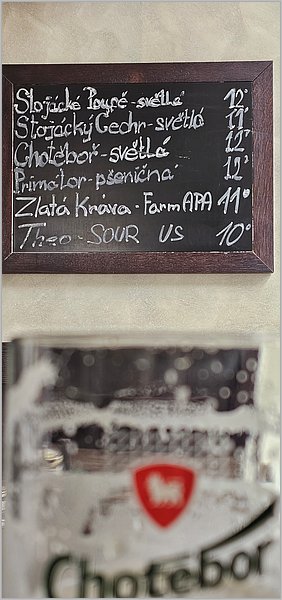 Slojácké Pouré - světlé 12°
Stojácký Geohr - světlá 11°
Chotěboř - světlá 12°
Primátor - pšeničná 12°
Zlatá Kráva - Farm APA 11°
Theo - SOUR US 10°
Chotebor